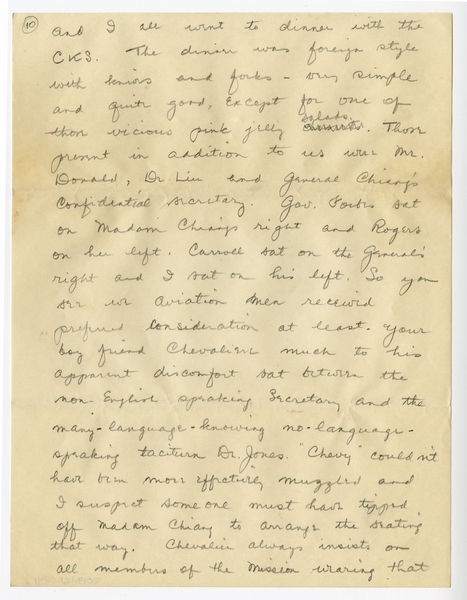 10
and I all went to dinner with the
CKS. The dinner was foreign style
with knives and forks - very simple
and quite good, except for one of
those vicious pink jelly salads. Those
present in addition to us were Mr.
Donald, Dr. Liu and General Chiang's
Confidential Secretary. Gov. Forbes sat
on Madam Chiang's right and Rogers
on her left. Carroll sat on the General's
right and I sat on his left. So you
see we aviation men received
preferred consideration at least. Your
boy friend Chevalier much to his
apparent discomfort sat between the
non-English speaking Secretary and the
many-language-knowing no-language-
speaking taciturn Dr. Jones. "Chevy" couldn't
have been more effectively muzzled and
I suspect some one must have tipped
off Madam Chiang to arrange the seating
that way. Chevalier always insists on
all members of the Mission wearing that